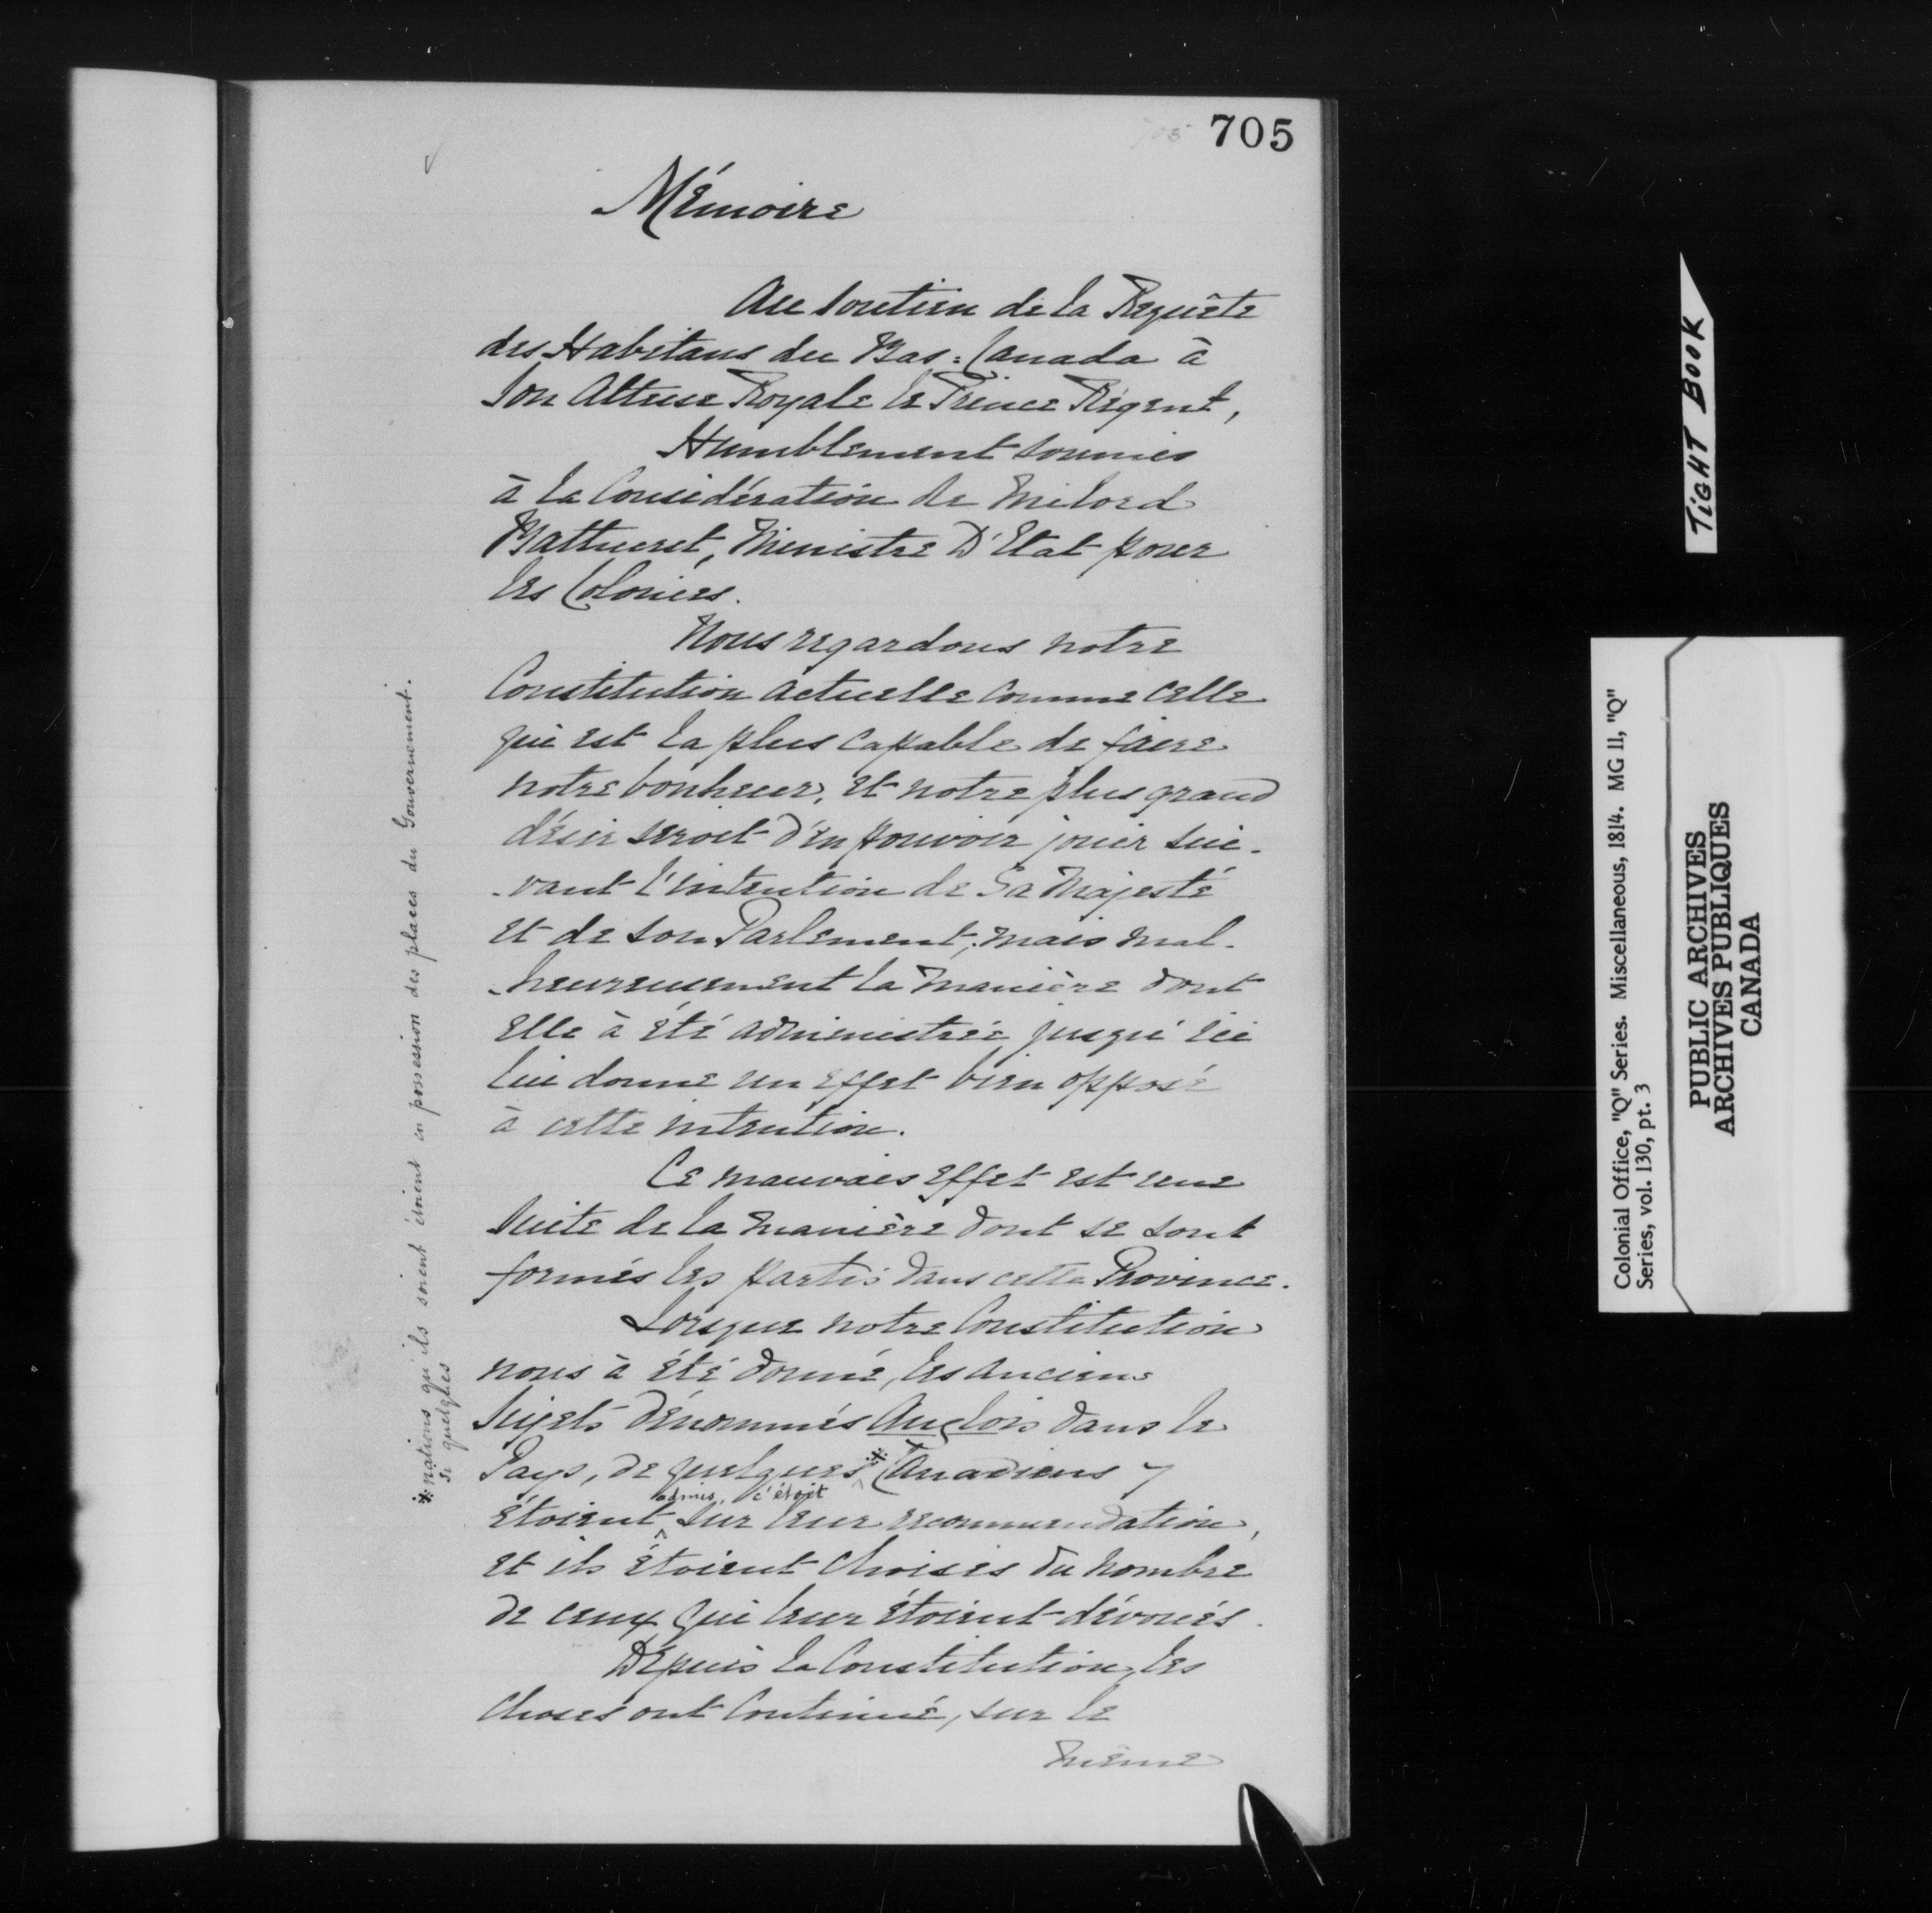 705
Mémoire
Au soutien de la Requête
des Habitans du Bas-Canada à
Son Altesse Royale le Prince Régent,
Humblement soumis
à la Considération de Milord
Bathurst, Ministre D'Etat pour
les Colonies.
Nous regardons notre
Constitution actuelle comme celle
qui est la plus capable de faire
notre bonheur, et notre plus grand
désir seroit d'en pouvoir jouir sui-
-vant l'intention de Sa Majesté
et de son Parlement; mais mal-
-heureusement la manière dont
elle à été administrée jusqu'ici
lui donne un effet bien opposé
à cette intention.
Ce mauvais effet est une
suite de la manière dont se sont
formés les partis dans cette Province.
Lorsque notre Constitution
nous à été donné, les anciens
Sujets dénommés Anglois dans le
Pays, de quelques ⁜ Canadiens y
étoient admis, c'étoit sur leur recommendation,
et ils étoient choisis du nombre
de ceux qui leur étoient dévoués.
Depuis la Constitution, les
choses ont continué, sur le
même
⁜ nations qu'ils soient étoient en possession des places du Gouvernement.
si quelques
TIGHT BOOK
Colonial Office, "Q" Series. Miscellaneous, 1814. MG 11, "Q"
Series, vol. 130, pt. 3
PUBLIC ARCHIVES
ARCHIVES PUBLIQUES
CANADA